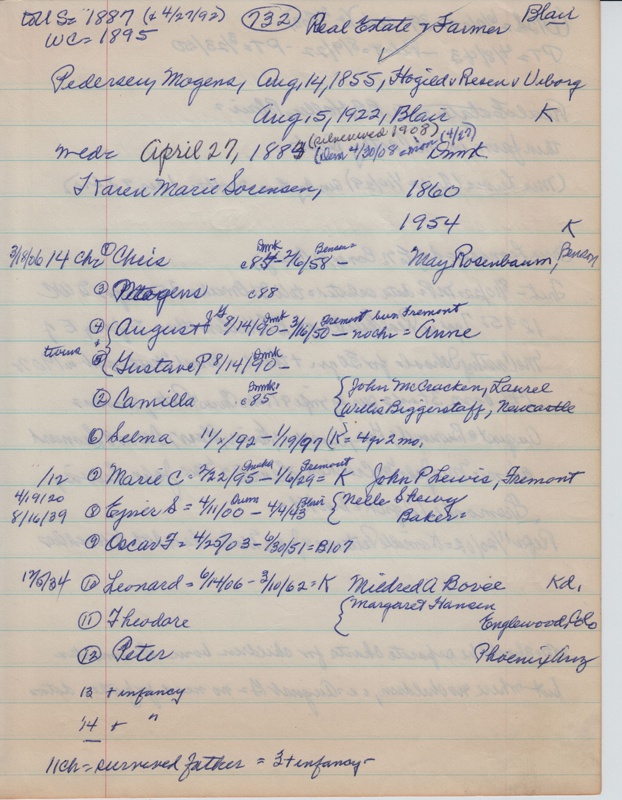 to US = 1887 (& 4/27/92) 732 Real Estate & Farmer Blair
WC = 1895
Pedersen, Mogens, Aug, 14, 1855, Hogild v Resen v Viborg
Aug, 5, 1922, Blair K
(silverwed 1908) (4/27)
med = April 27, 1883 (Dem 4/30/08 = mon Dmk.
T Karen Marie Sorensen, 1860
1954 K
3/18/26 14 ch = ① Chris c84 Dmk - 2/6/58 Benson - May Rosenbaum, Benson
③ Mogens c88
④ { August 8/14/90 Dmk - 3/16/50 Fremont - no ch = Anne
twins +
⑤ { Gustave P 8/14/90 Dmk -
② Camilla c85 Dmk { John McCracken, Laurel
Willis Biggerstaff, Newcastle
⑥ Selma 11/x/92 - 1/19/97 (K = 4 yr 2 mo,
1/12 ⑦ Marie C = 2/22/95 Omaha - 1/6/29 Fremont = K John P Lewis, Fremont
4/19/20 ⑧ Ejner S = 4/11/00 - 4/4/43 Blair { Nelle Shewy
8/16/39 Baker =
⑨ Oscar F = 4/25/03 - 6/30/51 = B107
12/6/34 ⑩ Leonard = 6/14/06 - 3/10/62 = K Mildred A Bovee Kd,
⑪ Theodore { Margaret Hansen
Englewood, Colo
⑫ Peter Phoenix, Ariz
13 + infancy
14 + "
11 ch = survived father = 3 + infancy -